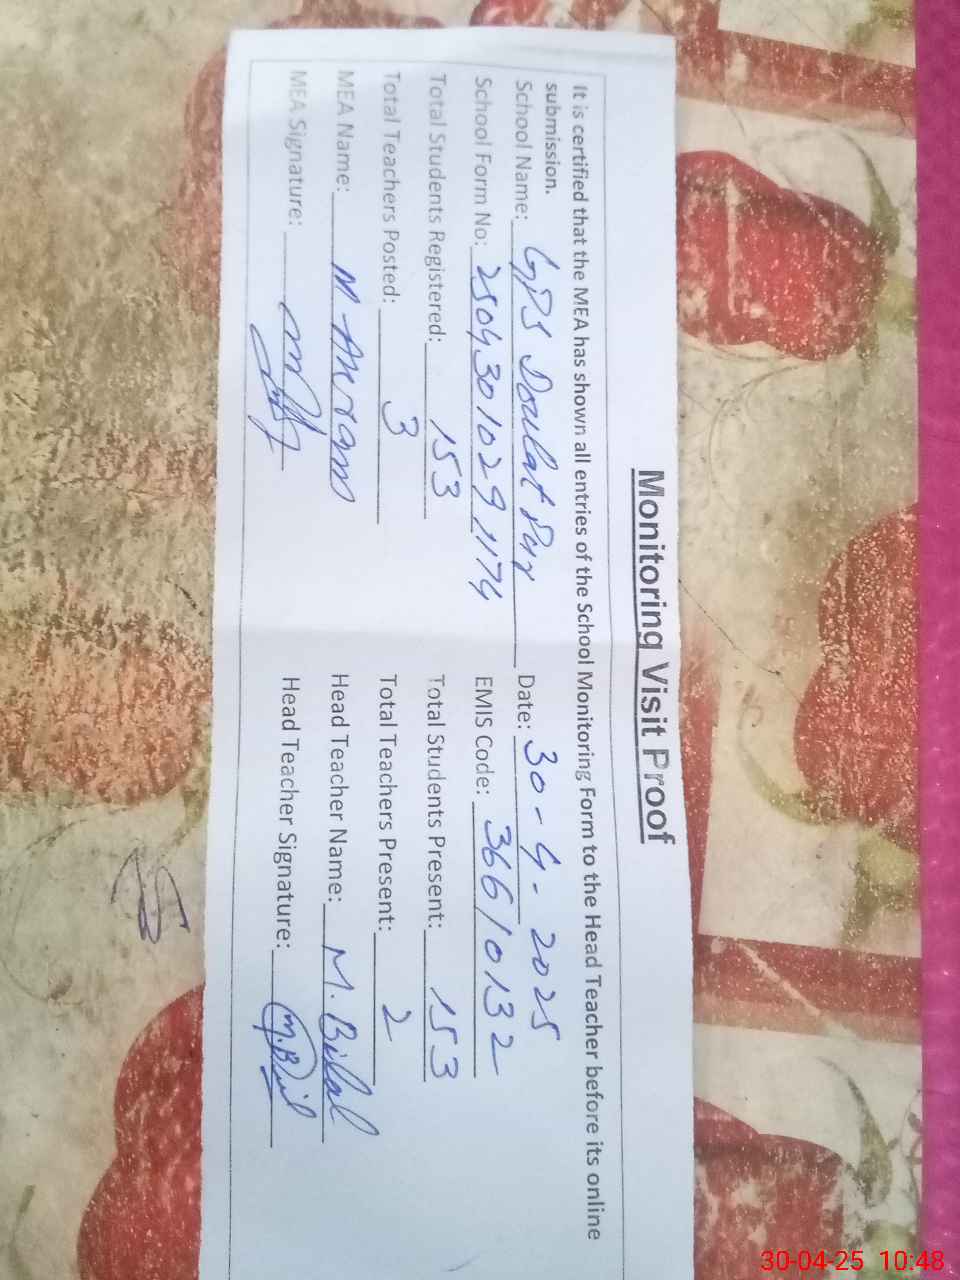 Monitoring Visit Proof
It is certified that the MEA has shown all entries of the School Monitoring Form to the Head Teacher before its online
submission.
School Name: GPS Doulat Pur Date: 30-4-2025
School Form No: 25043010291174 EMIS Code: 36610132
Total Students Registered: 153 Total Students Present: 153
Total Teachers Posted: 3 Total Teachers Present: 2
MEA Name: M Akram Head Teacher Name: M. Bilal
MEA Signature: Head Teacher Signature: M.Bilal
30-04-25 10:48